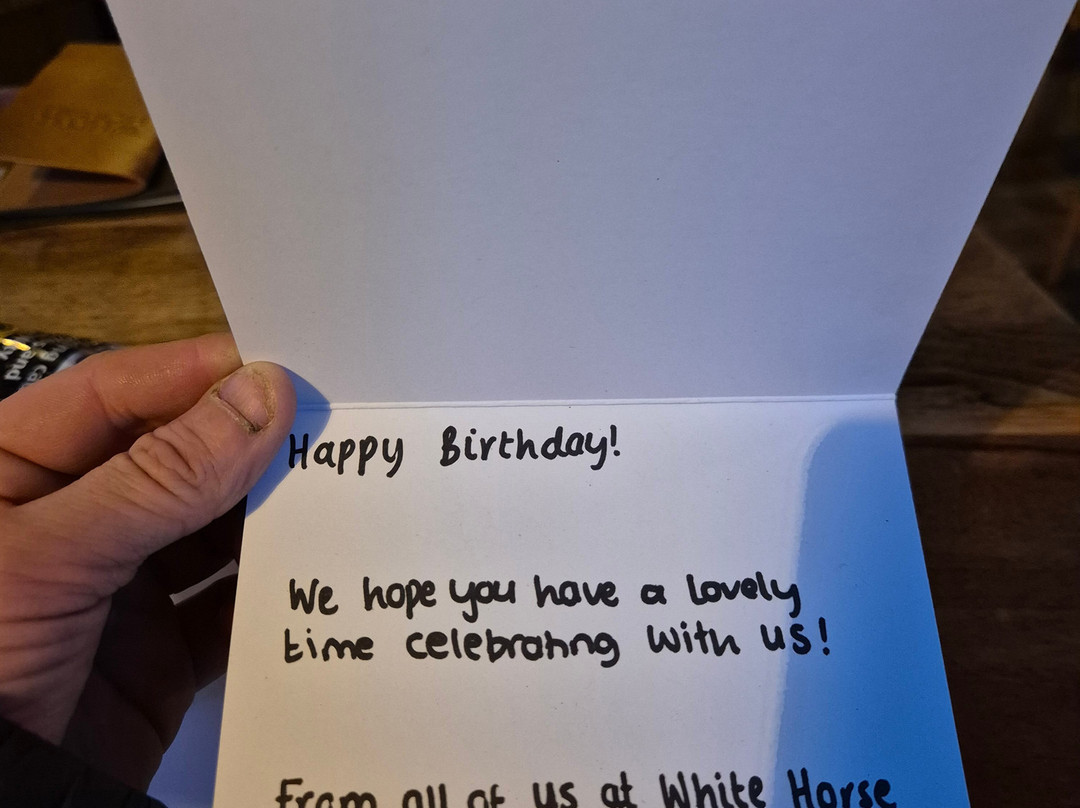 Happy Birthday!
We hope you have a lovely
time celebrating with us!
From all of us at White Horse